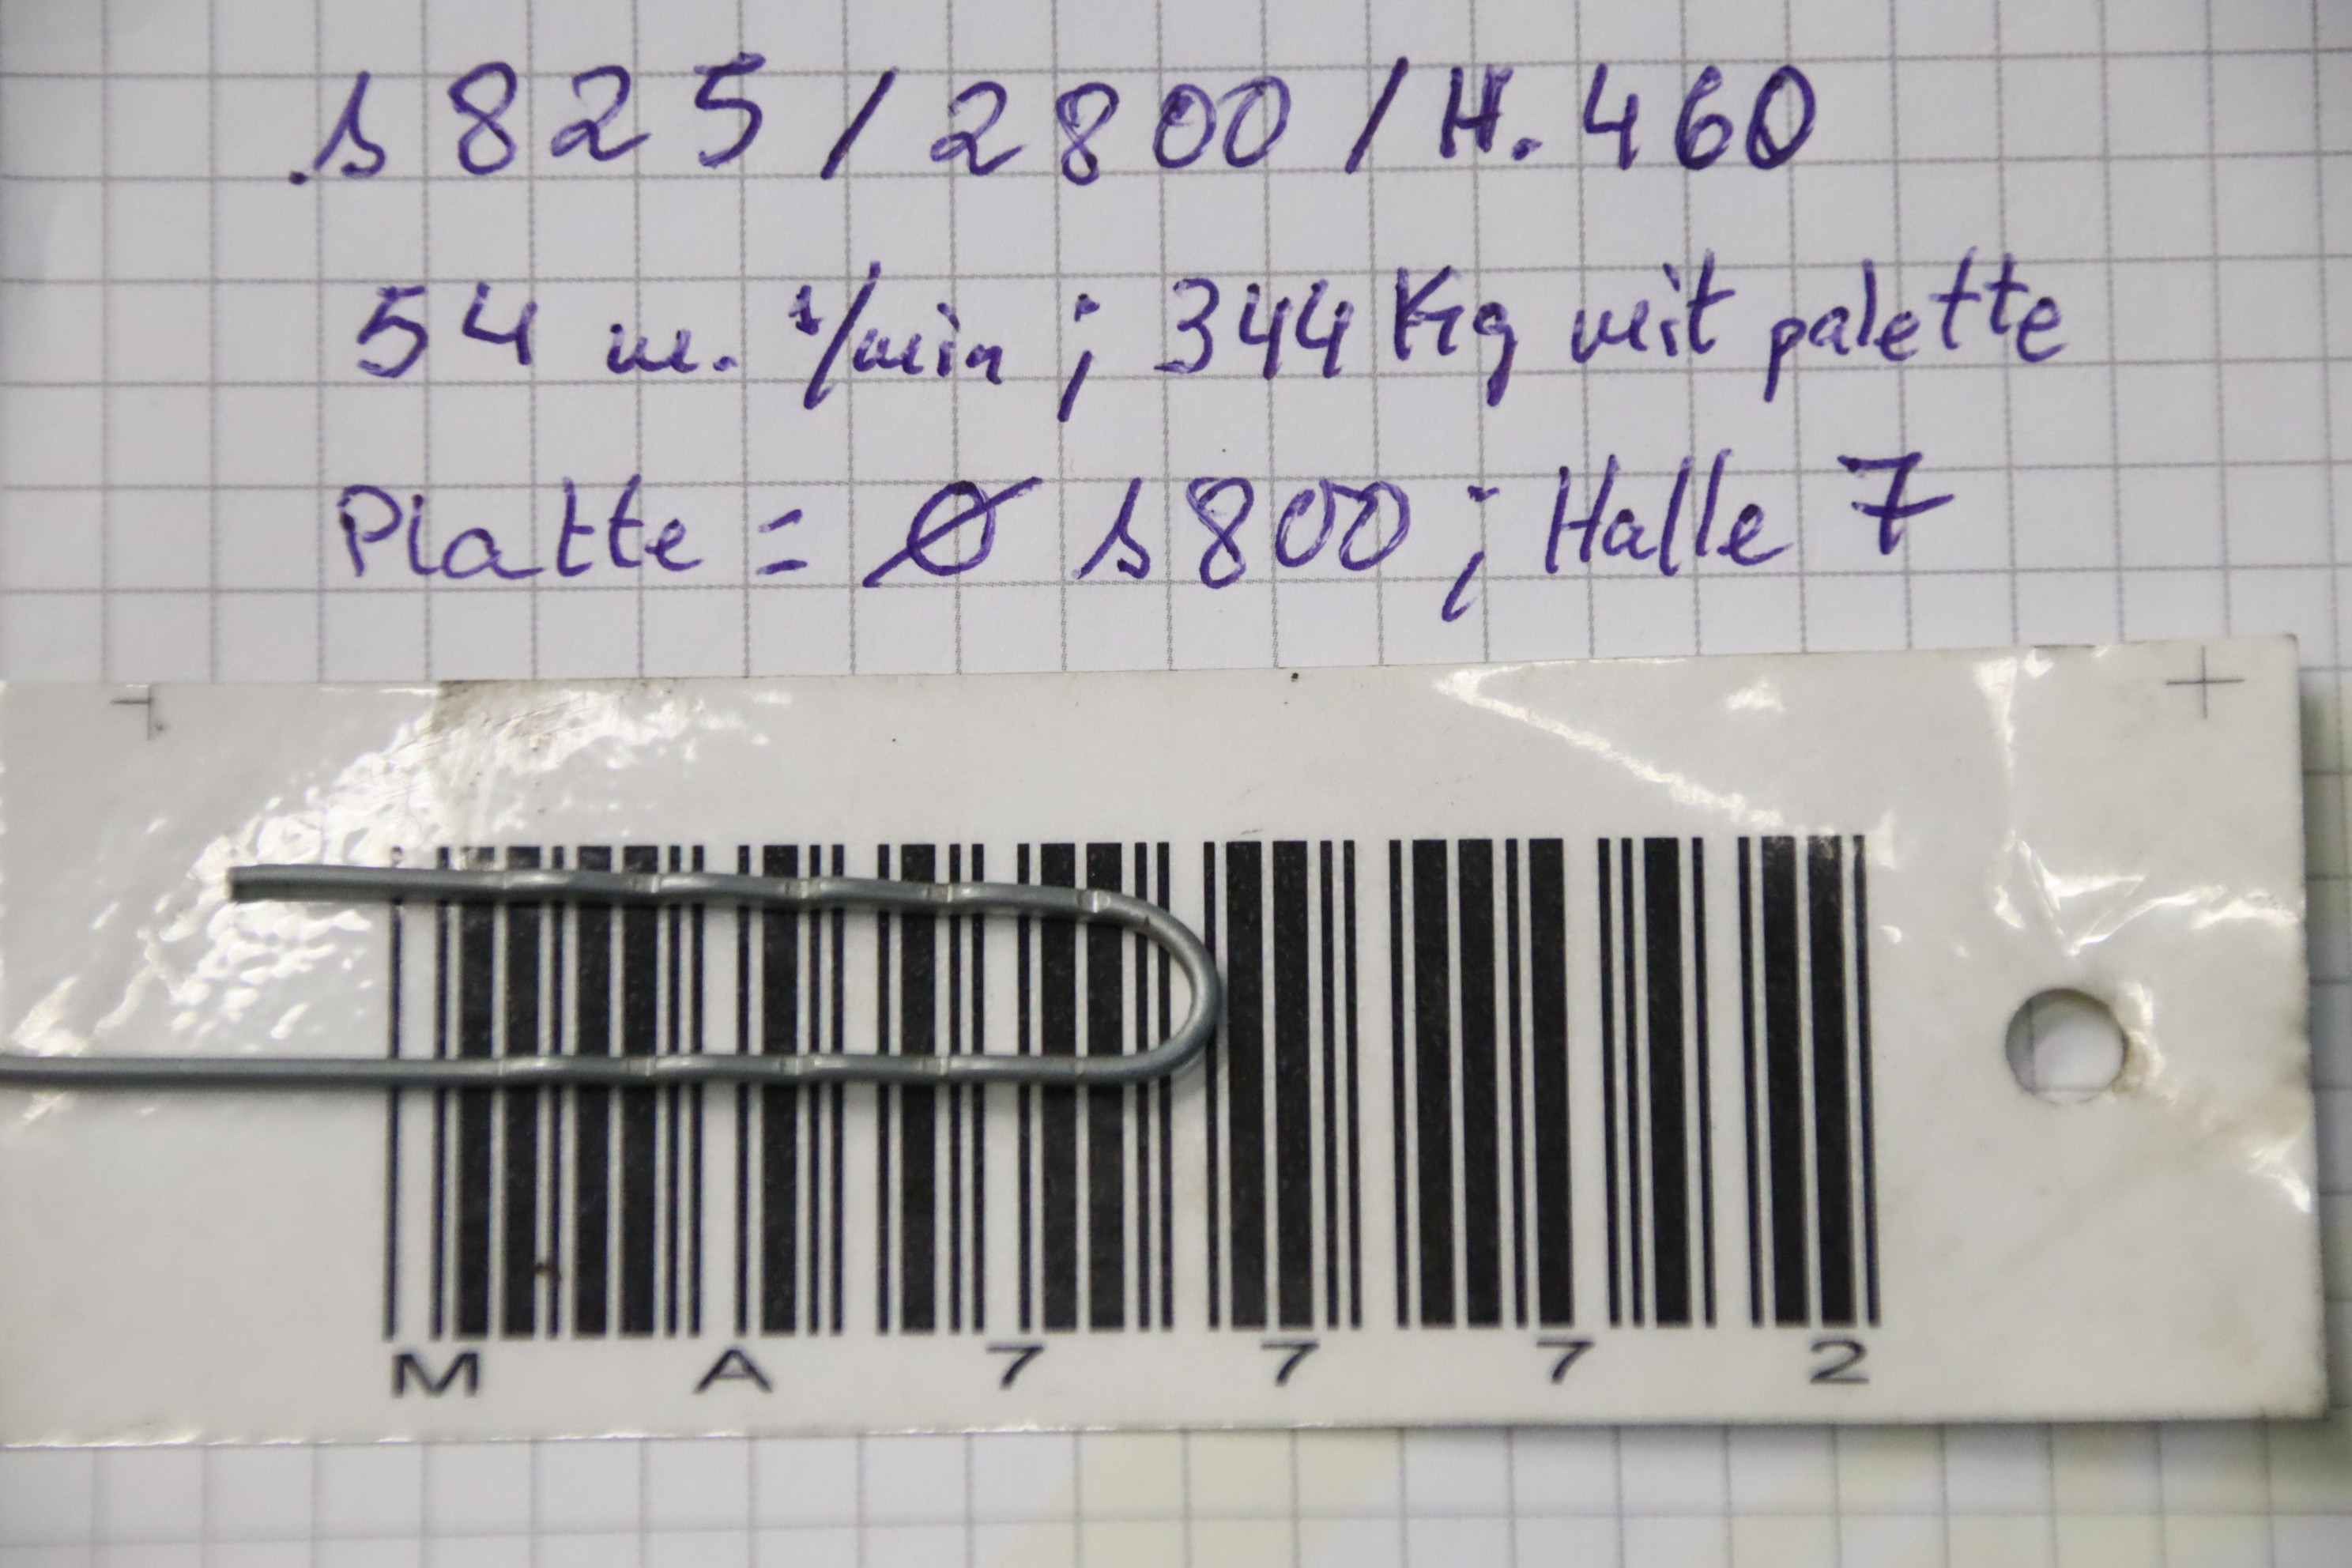 s 825 / 2800 / H. 460
54 m. 1/min ; 344 Kg mit palette
Platte = Ø s 800 ; Halle 7
MA7772